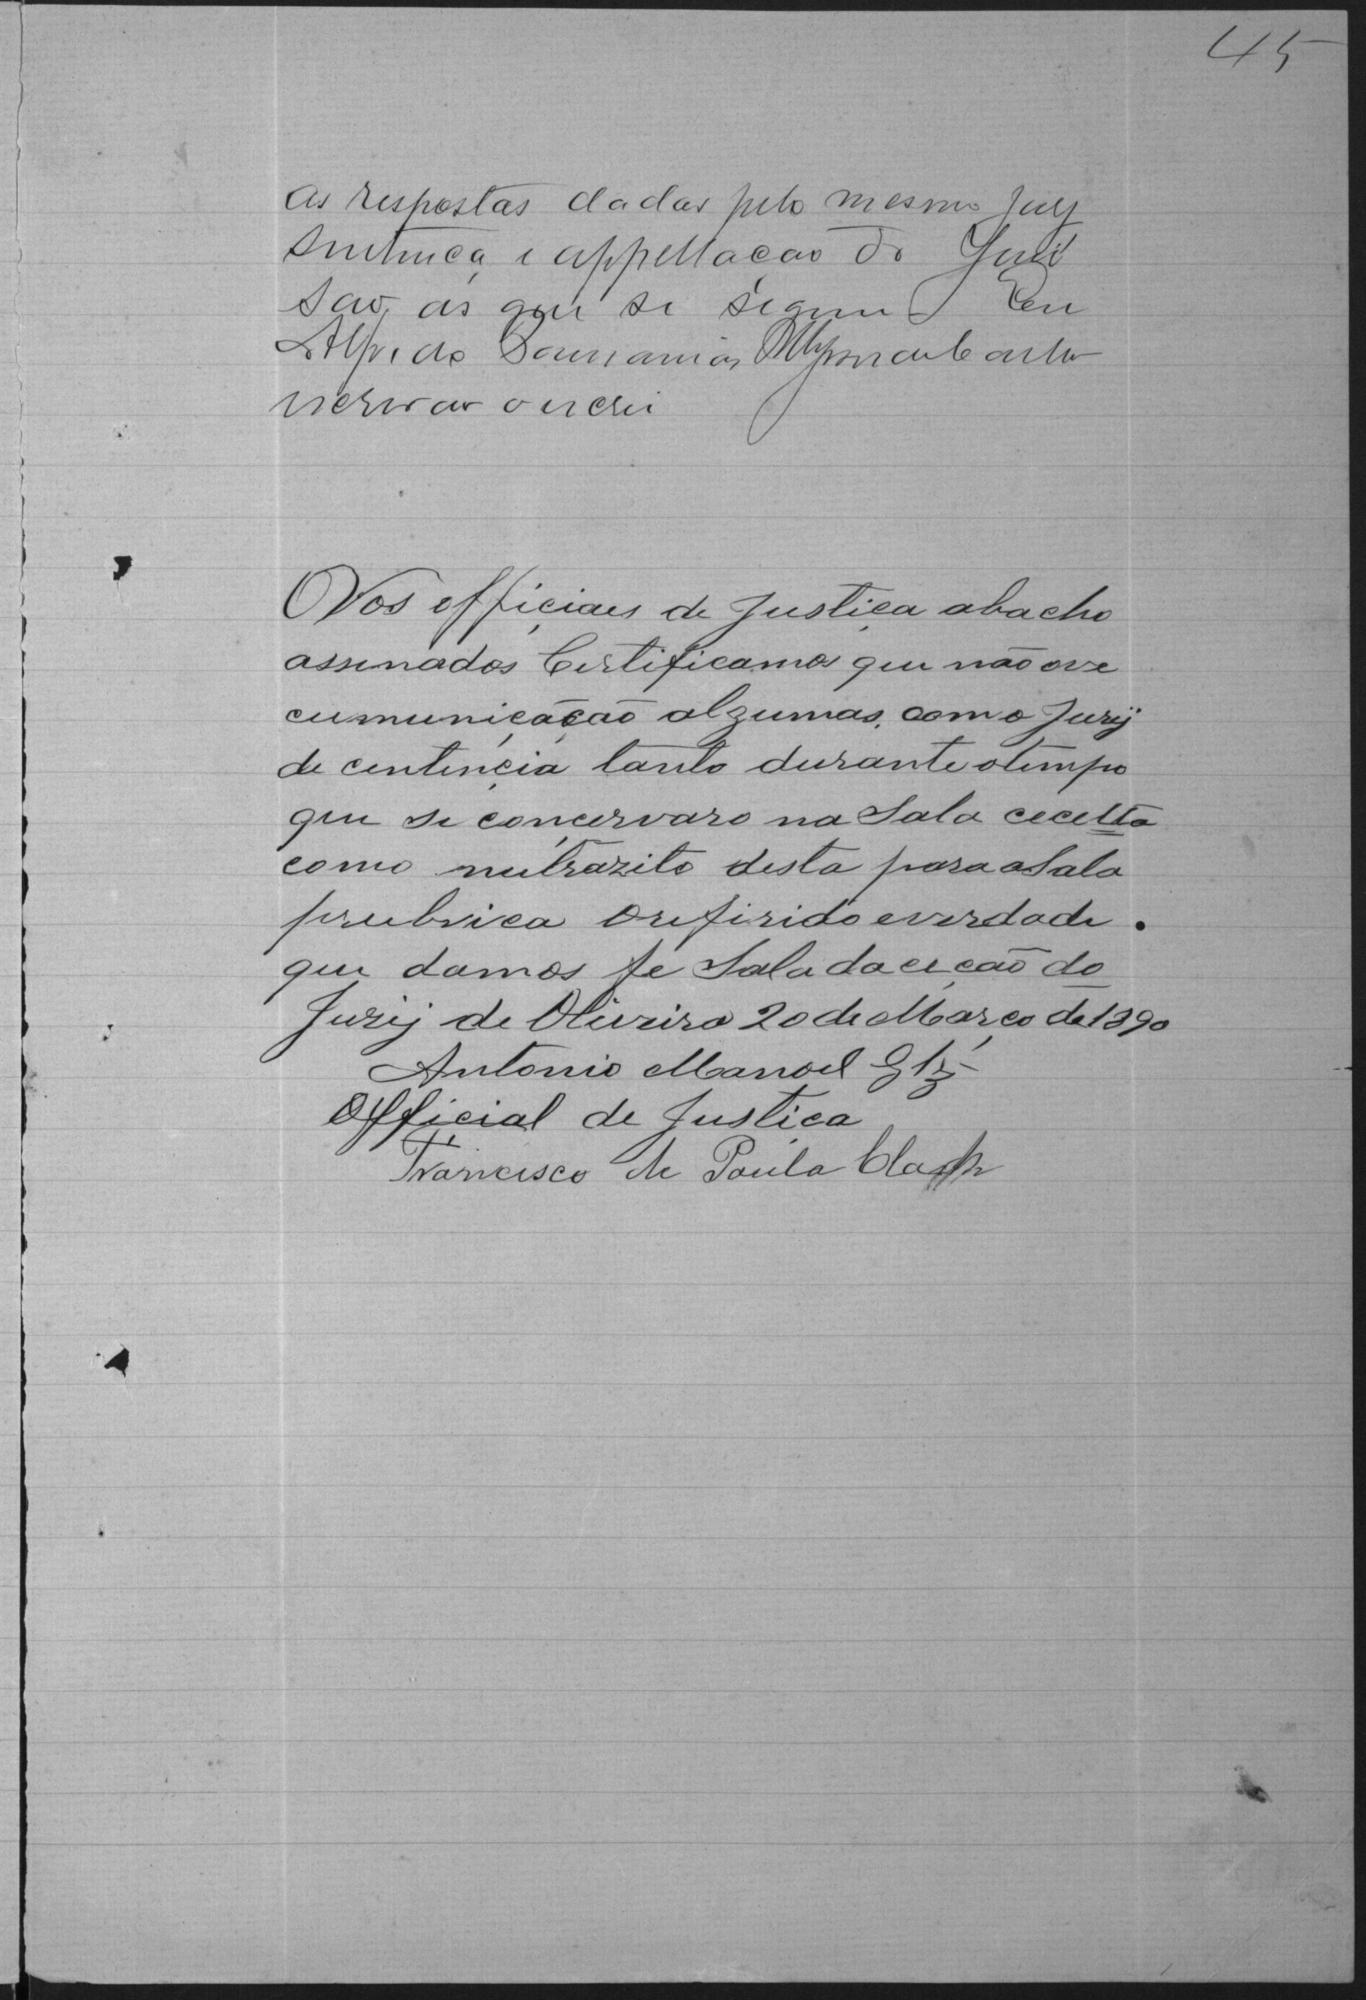 45
as respostas dadas pelo mesmo Jury
sentença e appellação do Juiz
são, as que se seguem Eu
Alfredo
escrivão o escrevi
Nos officiaes de Justiça abacho
assinados Certificamos que não ove
cumunicação algumas, com o Jurÿ
de centencia tanto durante o tempo
que se concervaro na Sala cecetta
como nutrazito desta para a Sala
prubrica o refirido e verdade.
que damos fe Sala da ceção do
Jurÿ de Oliveira 20 de Março de 1890
Antonio Manoel
Official de Justiça
Francisco de Paula